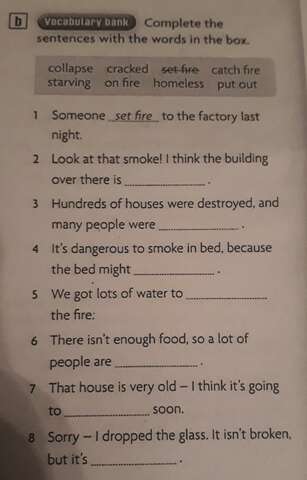 b Vocabulary bank Complete the
sentences with the words in the box.
collapse cracked set fire catch fire
starving on fire homeless put out
1 Someone set fire to the factory last
night.
2 Look at that smoke! I think the building
over there is ______ .
3 Hundreds of houses were destroyed, and
many people were ______ .
4 It's dangerous to smoke in bed, because
the bed might ______ .
5 We got lots of water to ______
the fire.
6 There isn't enough food, so a lot of
people are ______ .
7 That house is very old – I think it's going
to ______ soon.
8 Sorry – I dropped the glass. It isn't broken,
but it's ______ .